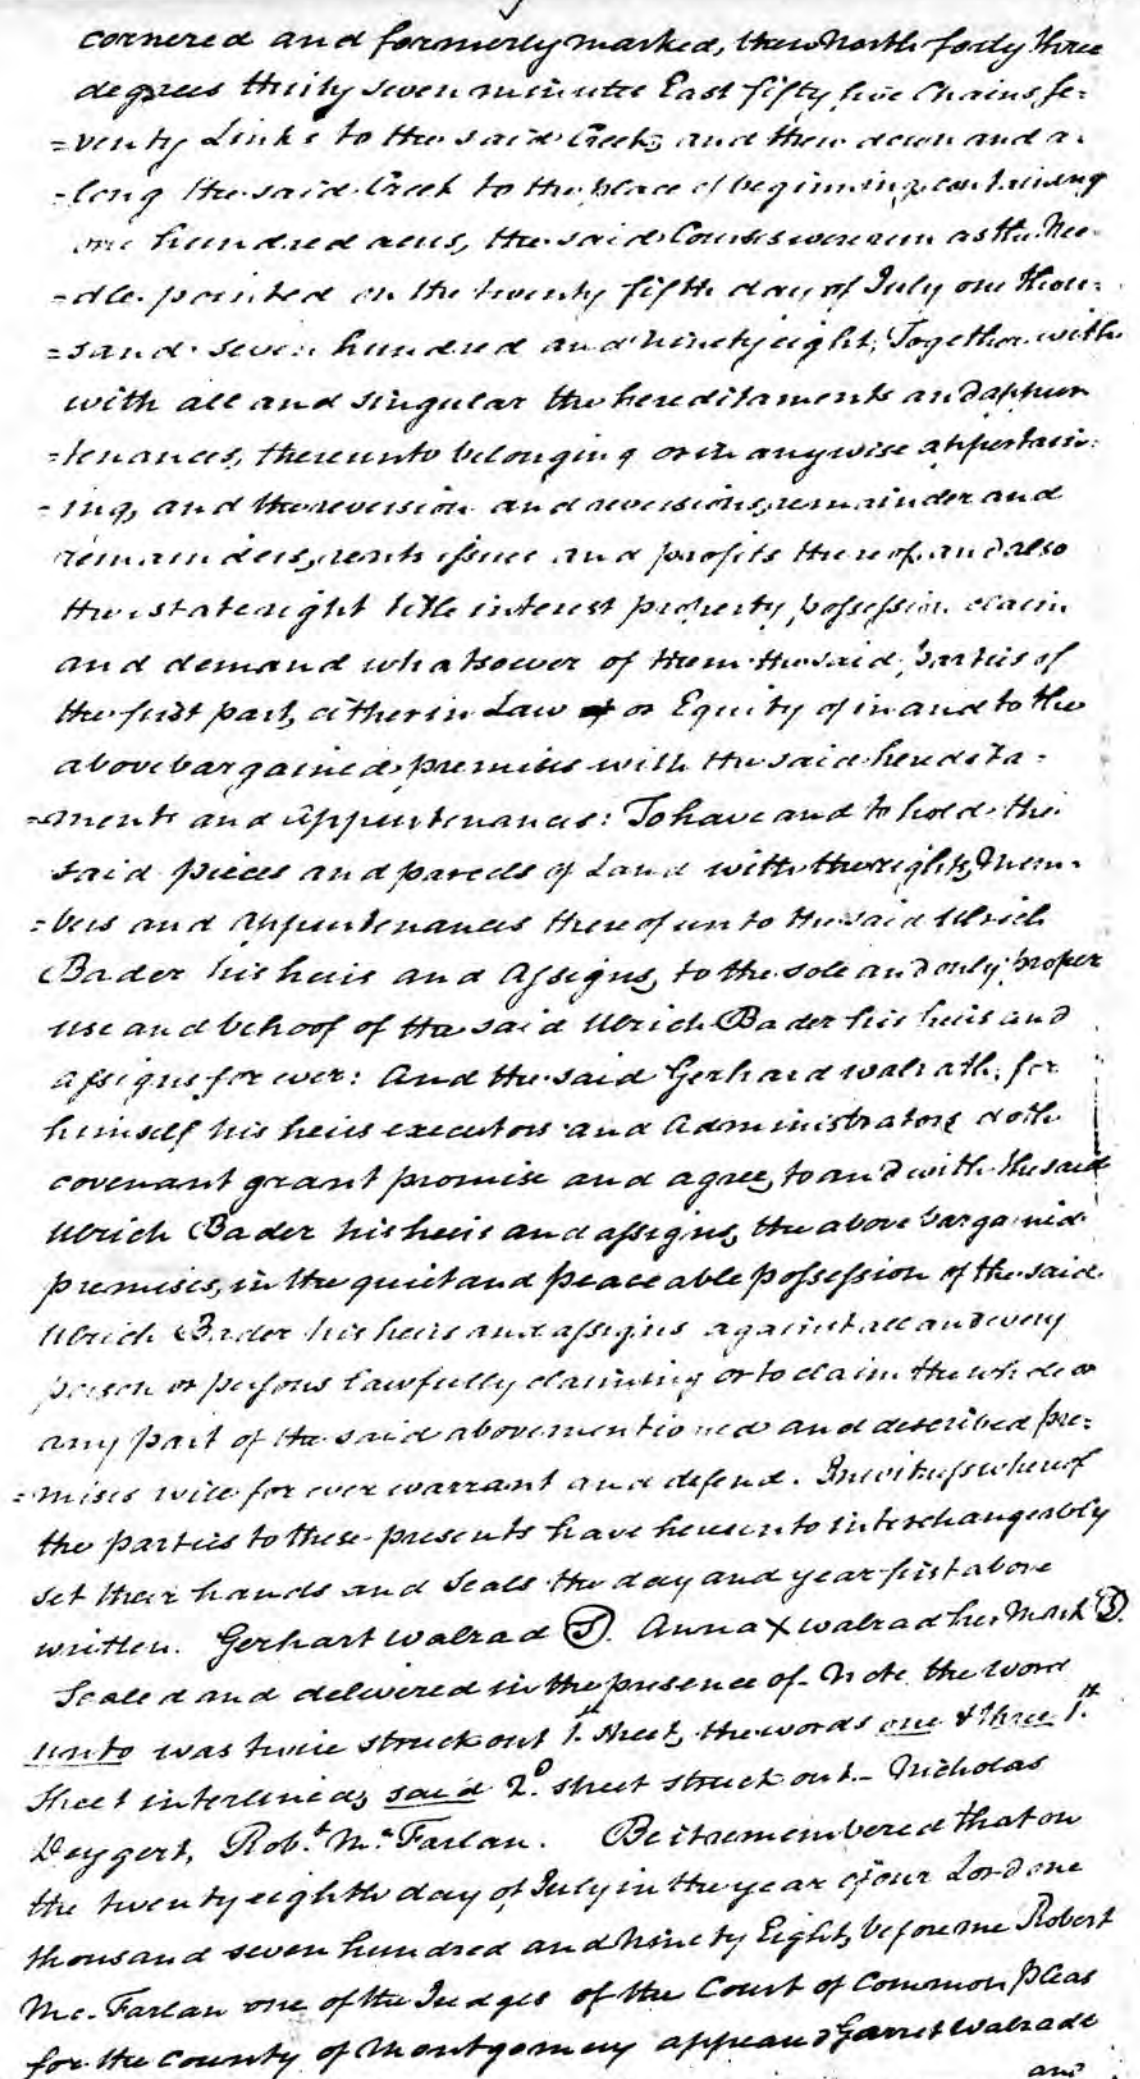 cornered and formerly marked, then North forty three
degrees thirty seven minutes East fifty five Chains, se=
=venty Links to the said Creek, and then down and a=
=long the said Creek to the place of beginning, containing
one hundred acres, the said Courses were run as the Nee=
=dle pointed on the twenty fifth day of July one thou=
=sand seven hundred and ninety eight, Together with
with all and singular the hereditaments and appur
=tenances, thereunto belonging or in anywise appertain=
=ing, and the reversion and reversions, remainder and
remainders, rents issues and profits thereof, and also
the estate right title interest property, possession claim
and demand whatsoever of them the said parties of
the first part, either in Law or Equity of in and to the
above bargained premises with the said heredita=
=ments and appurtenances: To have and to hold the
said pieces and parcels of Land with the rights, Mem=
=bers and appurtenances thereof unto the said Ulrich
Bader his heirs and Assigns, to the sole and only proper
use and behoof of the said Ulrich Bader his heirs and
assigns for ever: And the said Gerhard walrath, for
himself his heirs executors and Administrators doth
covenant grant promise and agree, to and with the said
Ulrich Bader his heirs and assigns, the above bargained
premises, in the quiet and peaceable possession of the said
Ulrich Bader his heirs and assigns against all and every
person or persons lawfully claiming or to claim the whole or
any part of the said abovementioned and described pre=
=mises will for ever warrant and defend. In witness whereof
the parties to these presents have hereunto interchangeably
set their hands and Seals the day and year first above
written. Gerhart walrad S. Anna X walrad her Mark S.
Sealed and delivered in the presence of - Note the word
unto was twice struck out 1.st sheet, the words one & three 1.st
sheet interlined, said 2.d sheet struck out. - Nicholas
Weygert, Rob.t M.c Farlan. Be it remembered that on
the twenty eighth day of July in the year of our Lord one
thousand seven hundred and Ninety Eight, before me Robert
Mc. Farlan one of the Judges of the Court of Common pleas
for the County of Montgomery appeared Garret Walrade
and